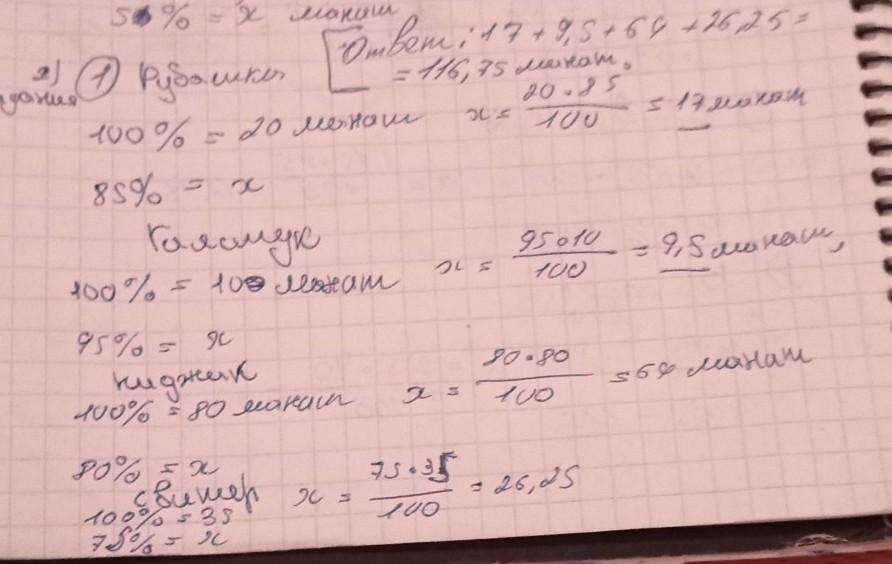 50% = x манат
Ответ: 17 + 9,5 + 64 + 26,25 =
= 116,75 манат.
2) 1 Рубашки
100% = 20 манат x = 20·85 / 100 = 17 манат
85% = x
Галстук
100% = 10 манат x = 95·10 / 100 = 9,5 манат,
95% = x
пиджак
100% = 80 манат x = 80·80 / 100 = 64 манат
80% = x
свитер x = 75·35 / 100 = 26,25
100% = 35
75% = x